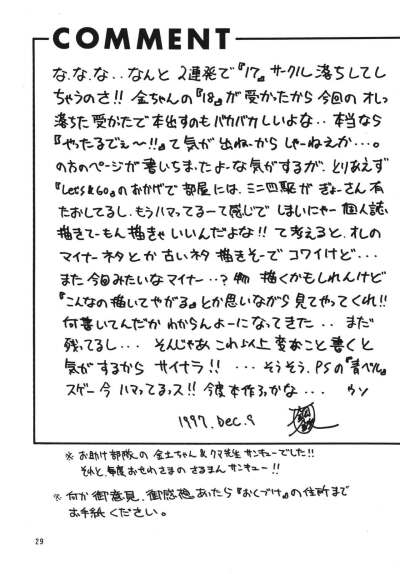 COMMENT
な、な、な‥なんと 2連発で『17』サークル落ちしてし
ちゃうのさ!! 金ちゃんの『18』が受かったから今回のオレっ
落ちた受かったで本出すのもバカバカしいよな‥本当なら
『やったるでぇ〜!!』て気が出ねーから しゃーねぇか…。
の方のページが書いちまったよーな気がするが、とりあえず
『Let's & Go』のおかげで部屋には、ミニ四駆が ぎょーさん有
たおしてるし、もうハマってるーて感じで しまいにゃー個人誌
描きてーもん描きゃいいんだよな!! て考えると、オレの
マイナーネタとか 古いネタ 描きそーで コワイけど…
また今回みたいなマイナー‥?物 描くかもしれんけど
『こんなの描いてやがる』とか思いながら 見てやってくれ!!
何書いてんだか わからんよーになってきた‥まだ
残ってるし… そんじゃあ これ以上 変なこと書くと
気がするから サイナラ!! …そうそう、PSの『青ベル』
スゲー今ハマってるッス!! 今度本作ろっかな… ウソ
1997. Dec. 9
※お助け部隊の 金土ちゃん&クマ先生 サンキューでした!!
それと、毎度おせわさまの さるまん サンキュー!!
※何か御意見、御感想あったら『おくづけ』の住所まで
お手紙ください。
29